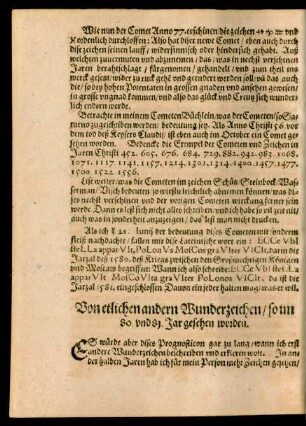 Wie nun der Comet Anno 77. erschinen/ die zeichen ♐ ♑ ♒ vnd
♓ ordenlich durchloffen: Also hat diser newe Comet / eben auch durch
dise zeichen seinen lauff/ widersinnisch oder hindersich gehabt. Auß
welchem zuuermuten vnd abzunemen / das / was in nechst verschinen
Jaren berahtschlagt / fürgenomen / gehandelt / vnd zum theil ins
werck gesetzt/ wider zu ruck gehe vnd geendert werden soll vnd das auch
die / so bey hohen Potentaten in grossen gnaden vnd ansehen gewesen/
in grosse vngnad kommen/ vnd also das glück vnd Creutz sich wunder-
lich endern werde.
Betrachte in meinem Cometen Büchlein, was der Cometen/ so Sa-
turno zu geschriben werden/ bedeutung sey. Als Anno Christi 56. vor
dem tod deß Keysers Claudij/ ist eben auch im October ein Comet ge-
sehen worden. Bedenck die Exempel der Cometen vnd Zeichen in
Jaren Christi 452. 605. 676. 684. 729. 882. 942. 983. 1068.
1071. 1117. 1141. 1157. 1214. 1301. 1314. 1400. 1457. 1477.
1500 1522. 1556.
Lise weiter/ was die Cometen im zeichen Schütz/ Steinbock/ Was-
serman/ Visch bedeuten/ so wirstu leichtlich abnemen können/ was di-
ses nechst verschinen vnd der vorigen Cometen wirckung ferner sein
werde. Dann es laßt sich nicht alles schreiben/ vnd ich habe so vil zeit nit/
auch was in zon anzeigen / das laßt man mich drucken.
Als ich 21. Iunij der bedeutung dises Cometen mit sonderm
fleiß nachdachte / fallen mir dise Lateinische wort ein: ECCe VbI
steLLa apparVIt, PoLonVs MosCos graVIter VICIt, darin die
Jarzal deß 1580. deß Kriegs zwischen den Großmechtigen Königen
vnd Moscaus begriffen: Wann ich also schreibe: ECCe VbI steLLa
apparVIt MosCoVIta graVIter PoLonos VICIt; da ist die
Jarzal 1581. eingeschlossen Dauon ein jeder halten mag was er wil.
Von etlichen andern Wunderzeichen / so im
80. vnd 81. Jar geschen werden.
ES würde aber dises Prognosticon gar zu lang / wann ich erst
andere Wunderzeichen beschreiben vnd erkleren wolt. In an-
derthalben Jaren hab ich für mein Person mehr Zeichen gesehen /